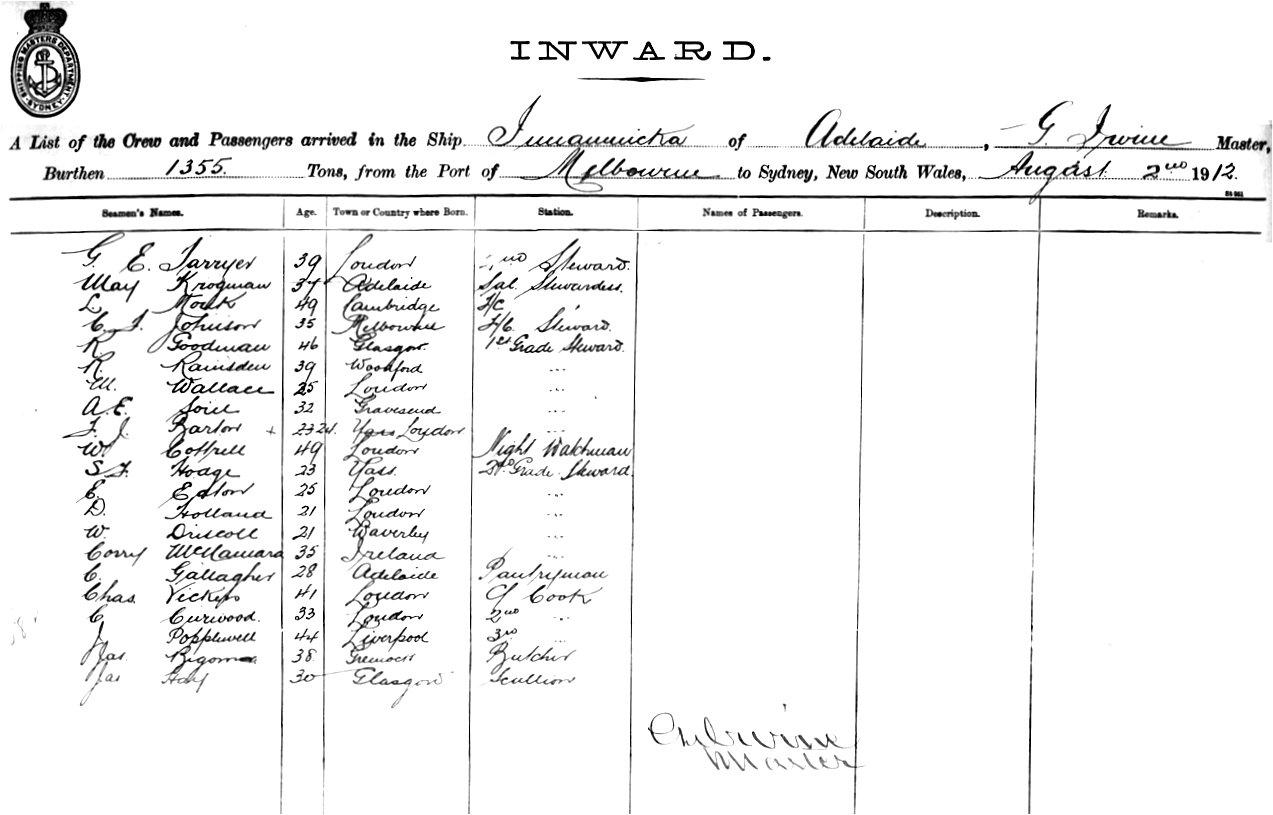 SHIPPING MASTERS DEPARTMENT
SYDNEY
INWARD.
A List of the Crew and Passengers arrived in the Ship Innamincka of Adelaide, G. Irvine Master,
Burthen 1355. Tons, from the Port of Melbourne to Sydney, New South Wales, August 2nd 1912.
Seamen's Names. Age. Town or Country where Born. Station. Names of Passengers. Description. Remarks.
G. E. Tarryer 39 London 2nd Steward.
May Krogman Adelaide Sal. Stewardess.
L. 49 Cambridge F/C
C. J. Johnson 35 Melbourne F/C. Steward.
R. Goodman 46 Glasgow. 1st Grade Steward.
R. Ramsden 39 Woodford ...
M. Wallace 25 London ...
A. E. 32 Gravesend ...
F. J. Barton + 23 24. Yass London ...
W Cottrell 49 London Night Watchman
S. F. Hodge 23 Yass. 2nd Grade Steward.
E. Eaton 25 London ...
D. Holland 21 London ...
W. Driscoll 21 Waverley ...
Corry McNamara 35 Ireland ...
C. Gallagher 28 Adelaide Pantryman
Chas. Vickers 41 London C/ Cook
C. Curwood. 33 London 2nd ..
J. Popplewell 44 Liverpool 3rd ..
Jas. 38 Greenock Butcher
Jas Hay 30 Glasgow Scullion
Irvine
Master